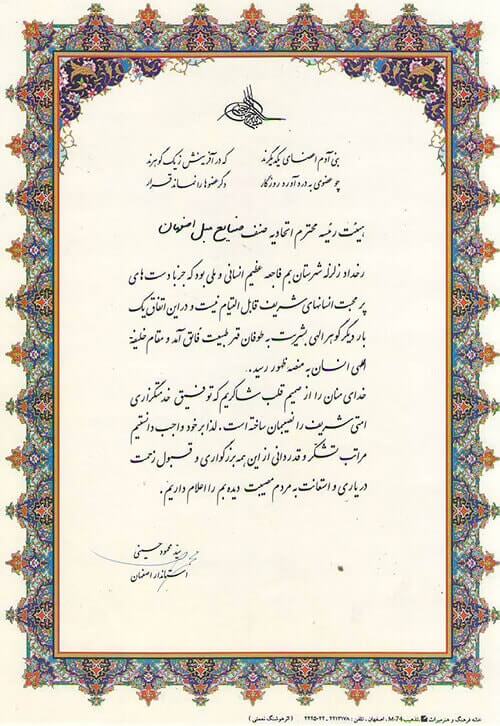 بنی آدم اعضای یکدیگرند که در آفرینش ز یک گوهرند
چو عضوی به درد آورد روزگار دگر عضوها را نماند قرار
هیئت رئیسه محترم اتحادیه صنف صنایع مبل اصفهان
رخداد زلزله شهرستان بم فاجعه عظیم انسانی و ملی بود که جز با دست های
پر محبت انسانهای شریف قابل التیام نیست و در این اتفاق یک
بار دیگر گوهر الهی بشریت به طوفان قهر طبیعت فایق آمد و مقام خلیفة
الهی انسان به منصه ظهور رسید.
خدای منان را از صمیم قلب شاکریم که توفیق خدمتگزاری
امتی شریف را نصیبمان ساخته است. لذا بر خود واجب دانستیم
مراتب تشکر و قدردانی از این همه بزرگواری و قبول زحمت
در یاری و استعانت به مردم مصیبت دیده بم را اعلام داریم.
سید محمود حسینی
استاندار اصفهان
خانه فرهنگ و هنر میراث تذهیب M-74، اصفهان، تلفن: ۲۲۱۳۱۷۸ - ۲۲۶۵۰۲۲ (اثر هوشنگ نعمتی)